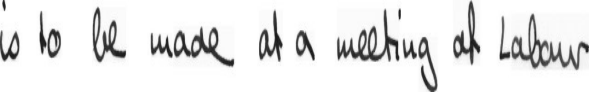 is to be made at a meeting of Labour